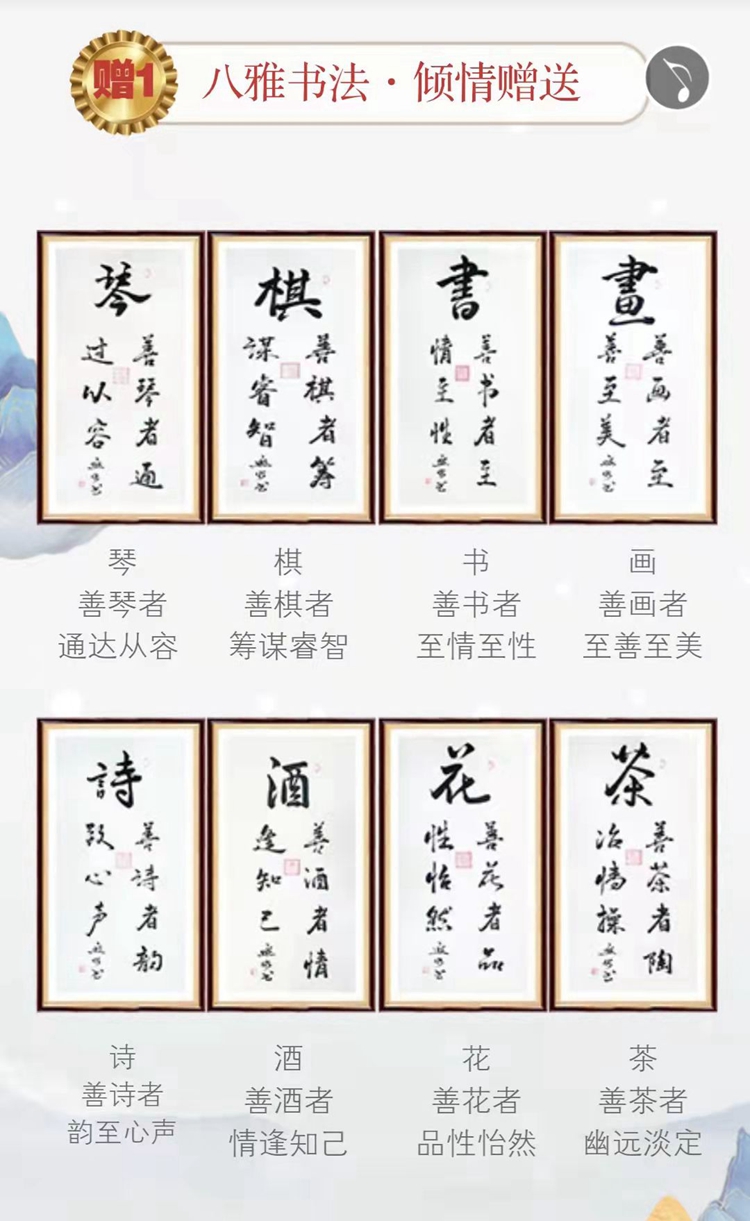 赠1
八雅书法·倾情赠送
琴
善琴者通
达从容
棋
善棋者筹
谋睿智
書
善书者至
情至性
畫
善画者至
善至美
琴
善琴者
通达从容
棋
善棋者
筹谋睿智
书
善书者
至情至性
画
善画者
至善至美
詩
善诗者韵
致心声
酒
善酒者情
逢知己
花
善花者品
性怡然
茶
善茶者陶
冶情操
诗
善诗者
韵至心声
酒
善酒者
情逢知己
花
善花者
品性怡然
茶
善茶者
幽远淡定